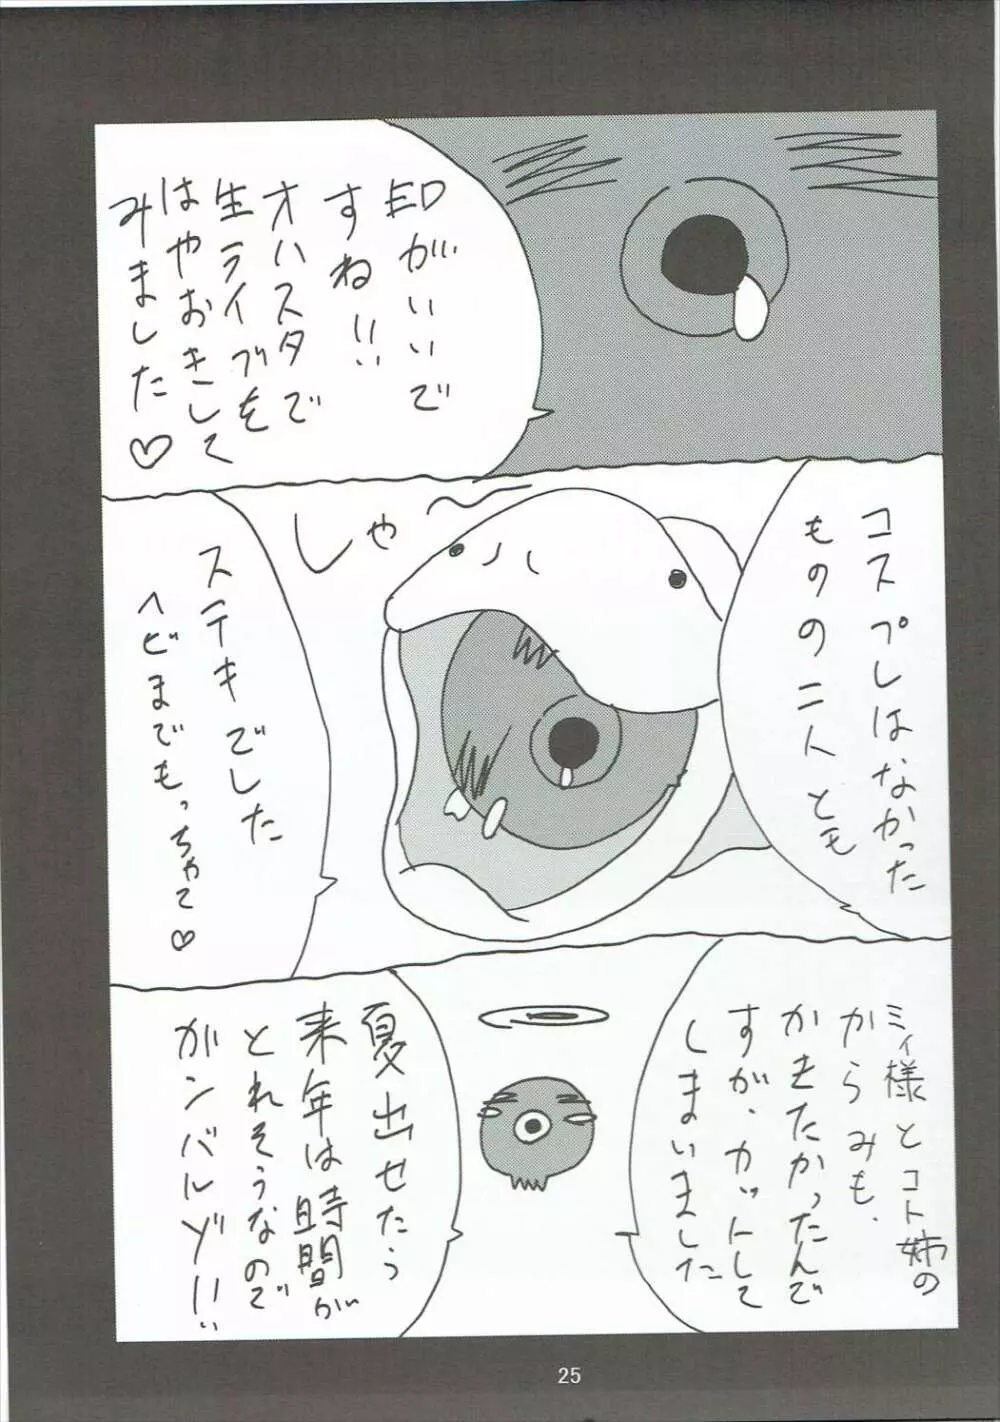 印がいいで
すね!!
オハスタで
生ライブを
はやおきして
みました♡
コスプレはなかった
ものの二人とも
しゃ〜
ステキでした
ヘビまでもっちゃて♡
ミィ様とコト姉の
からみも、
かきたかったんで
すが、カットして
しまいました
夏出せたら
来年は時間が
とれそうなので
ガンバルゾ!!
25